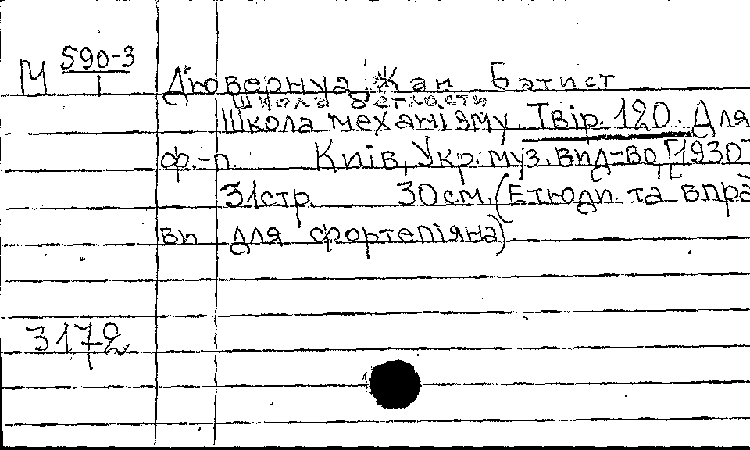 М 590-3
І
Дювернуа, Жан Батист
Школа беглости
Школа механізму. Твір 120. Для
ф.-п. Київ, Укр. муз. вид-во [1930]
31стр. 30см. (Етюди та впра
ви для фортепіяна)
3172